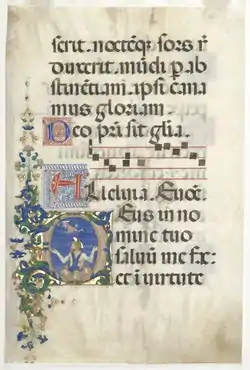 scrit. noctēqȝ sors ñ
duxerit. mūdi p̱ ab
stinētiam. ipsi cana
mus gloriam
Deo pr̄i sit gl̄ia.
Alleluia. Euoē.
Deus in no
mine tuo
saluū me fac:
et ī uirtute